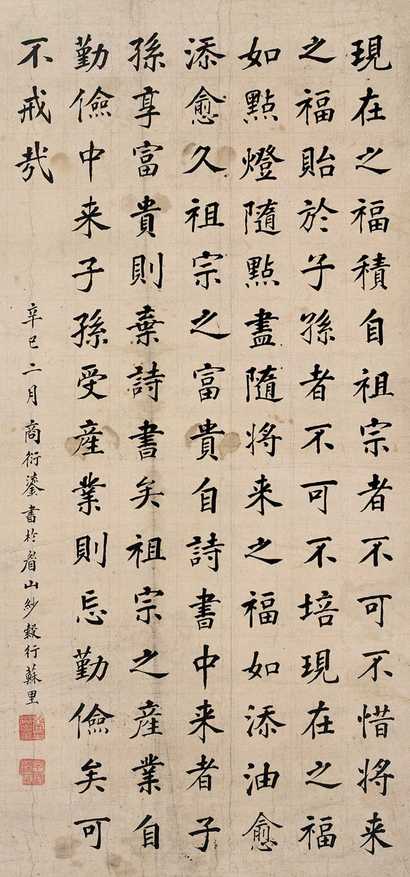 現在之福積自祖宗者不可不惜將来
之福貽於子孫者不可不培現在之福
如點燈隨點盡隨將来之福如添油愈
添愈久祖宗之富貴自詩書中来者子
孫享富貴則棄詩書矣祖宗之產業自
勤儉中来子孫受產業則忘勤儉矣可
不戒哉
辛巳二月商衍鎏書於眉山紗縠行蘇里